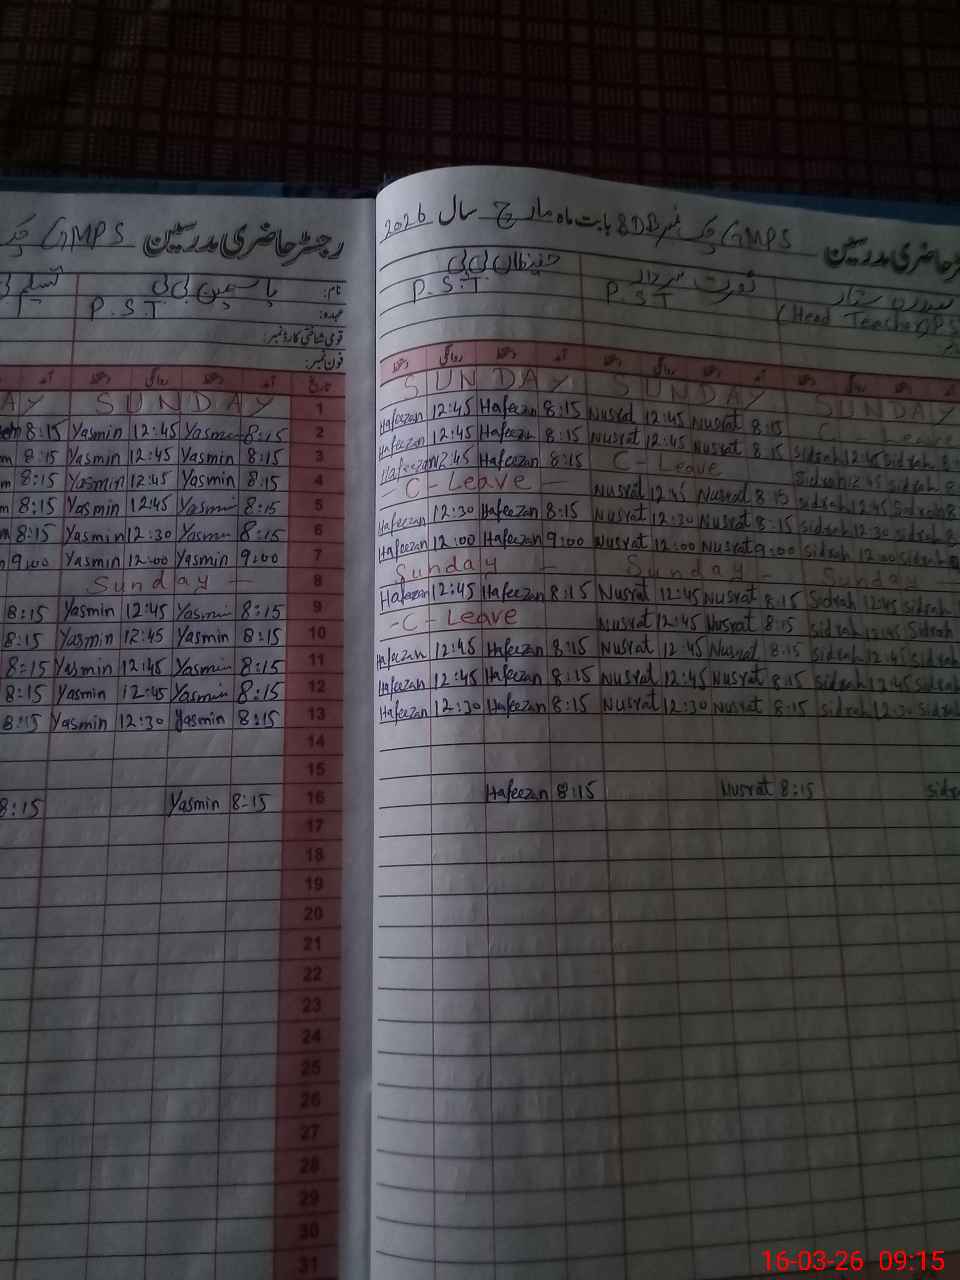 رجسٹر حاضری مدرسین GMPS چک
نام: یاسمین بی بی تسلیم
عہدہ: P.S.T
قومی شناختی کارڈ نمبر:
فون نمبر:
تاریخ آمد دستخط روانگی دستخط آمد
1 SUNDAY AY
2 8:15 Yasmin 12:45 Yasmin 8:15
3 8:15 Yasmin 12:45 Yasmin 8:15
4 8:15 Yasmin 12:45 Yasmin 8:15
5 8:15 Yasmin 12:45 Yasmin 8:15
6 8:15 Yasmin 12:30 Yasmin 8:15
7 9:00 Yasmin 12:00 Yasmin 9:00
8 Sunday —
9 8:15 Yasmin 12:45 Yasmin 8:15
10 8:15 Yasmin 12:45 Yasmin 8:15
11 8:15 Yasmin 12:45 Yasmin 8:15
12 8:15 Yasmin 12:45 Yasmin 8:15
13 8:15 Yasmin 12:30 Yasmin 8:15
14
15
16 8:15 Yasmin 8:15
17
18
19
20
21
22
23
24
25
26
27
28
29
30
31
حاضری مدرسین GMPS چک نمبر 8DB بابت ماہ مارچ سال 2026
سدرہ ستار نصرت سردار حفیظاں بی بی
(Head Teacher) PS P.S.T P.S.T
دستخط روانگی دستخط آمد دستخط روانگی دستخط آمد دستخط روانگی دستخط
SUNDAY SUNDAY SUNDAY
Hafeezan 12:45 Hafeezan 8:15 Nusrat 12:45 Nusrat 8:15 Leave
Hafeezan 12:45 Hafeezan 8:15 Nusrat 12:45 Nusrat 8:15 Sidrah 12:45 Sidrah 8:
Hafeezan 12:45 Hafeezan 8:15 C-Leave Sidrah 12:45 Sidrah 8:
-C-Leave — Nusrat 12:45 Nusrat 8:15 Sidrah 12:45 Sidrah 8:
Hafeezan 12:30 Hafeezan 8:15 Nusrat 12:30 Nusrat 8:15 Sidrah 12:30 Sidrah 8:
Hafeezan 12:00 Hafeezan 9:00 Nusrat 12:00 Nusrat 9:00 Sidrah 12:00 Sidrah
Sunday — Sunday — Sunday —
Hafeezan 12:45 Hafeezan 8:15 Nusrat 12:45 Nusrat 8:15 Sidrah 12:45 Sidrah
-C-Leave Nusrat 12:45 Nusrat 8:15 Sidrah 12:45 Sidrah
Hafeezan 12:45 Hafeezan 8:15 Nusrat 12:45 Nusrat 8:15 Sidrah 12:45 Sidrah
Hafeezan 12:45 Hafeezan 8:15 Nusrat 12:45 Nusrat 8:15 Sidrah 12:45 Sidrah
Hafeezan 12:30 Hafeezan 8:15 Nusrat 12:30 Nusrat 8:15 Sidrah 12:30 Sidrah
Hafeezan 8:15 Nusrat 8:15 Sidra
16-03-26 09:15